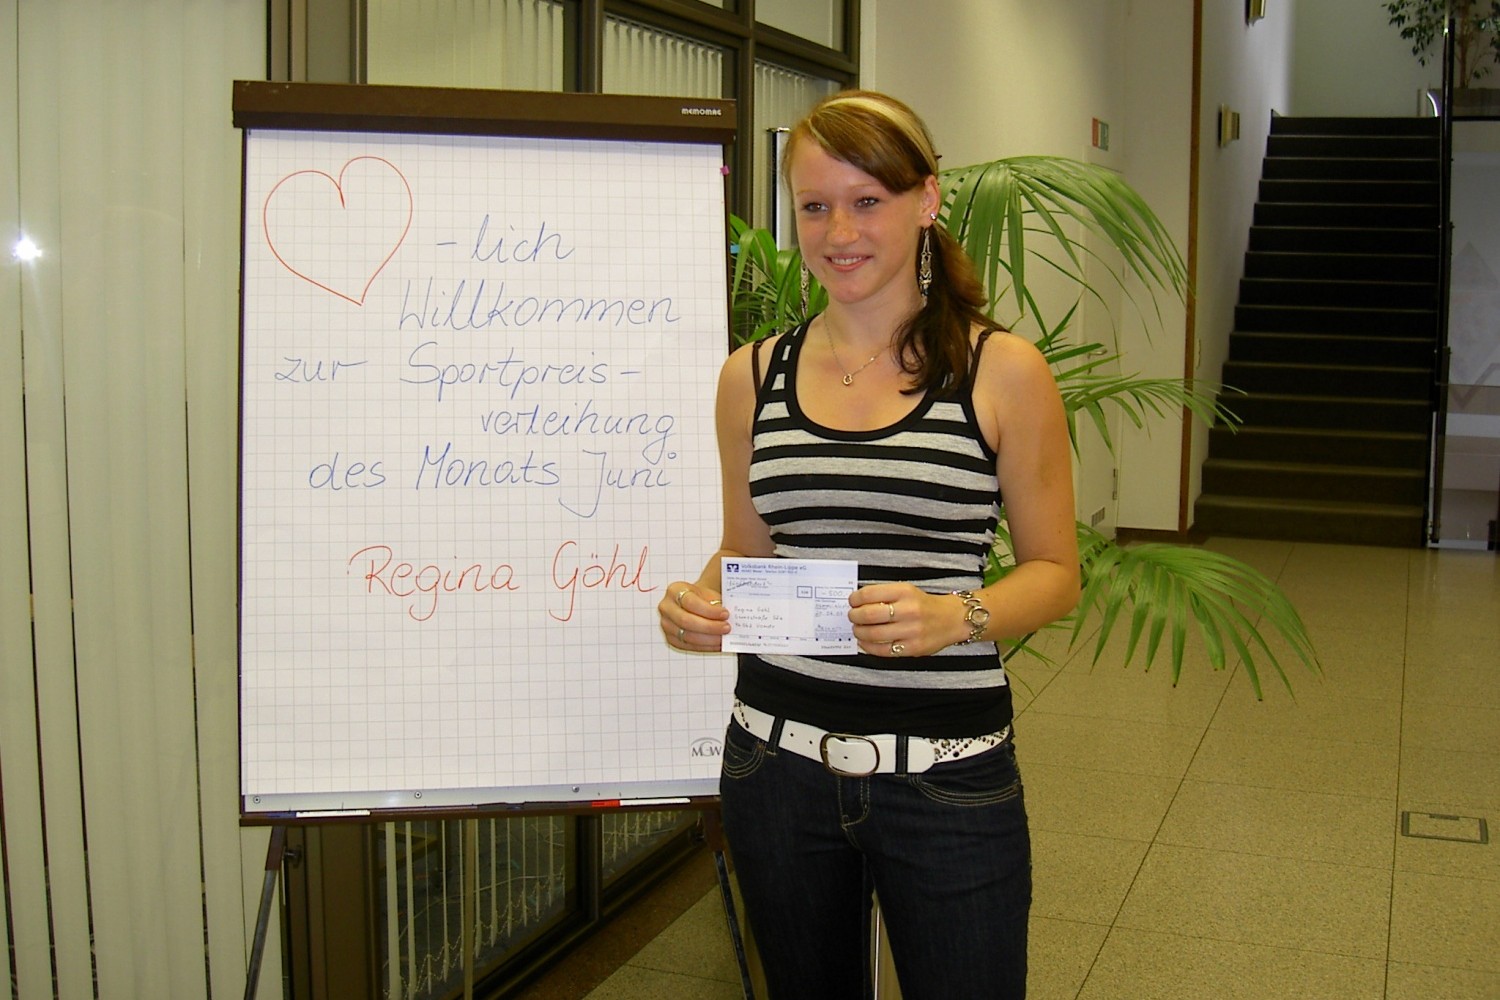 MEMOMAG
-lich
Willkommen
zur Sportpreis-
verleihung
des Monats Juni
Regina Göhl
MGW
Volksbank Rhein-Lippe eG
EUR
-500,-
Regina Göhl